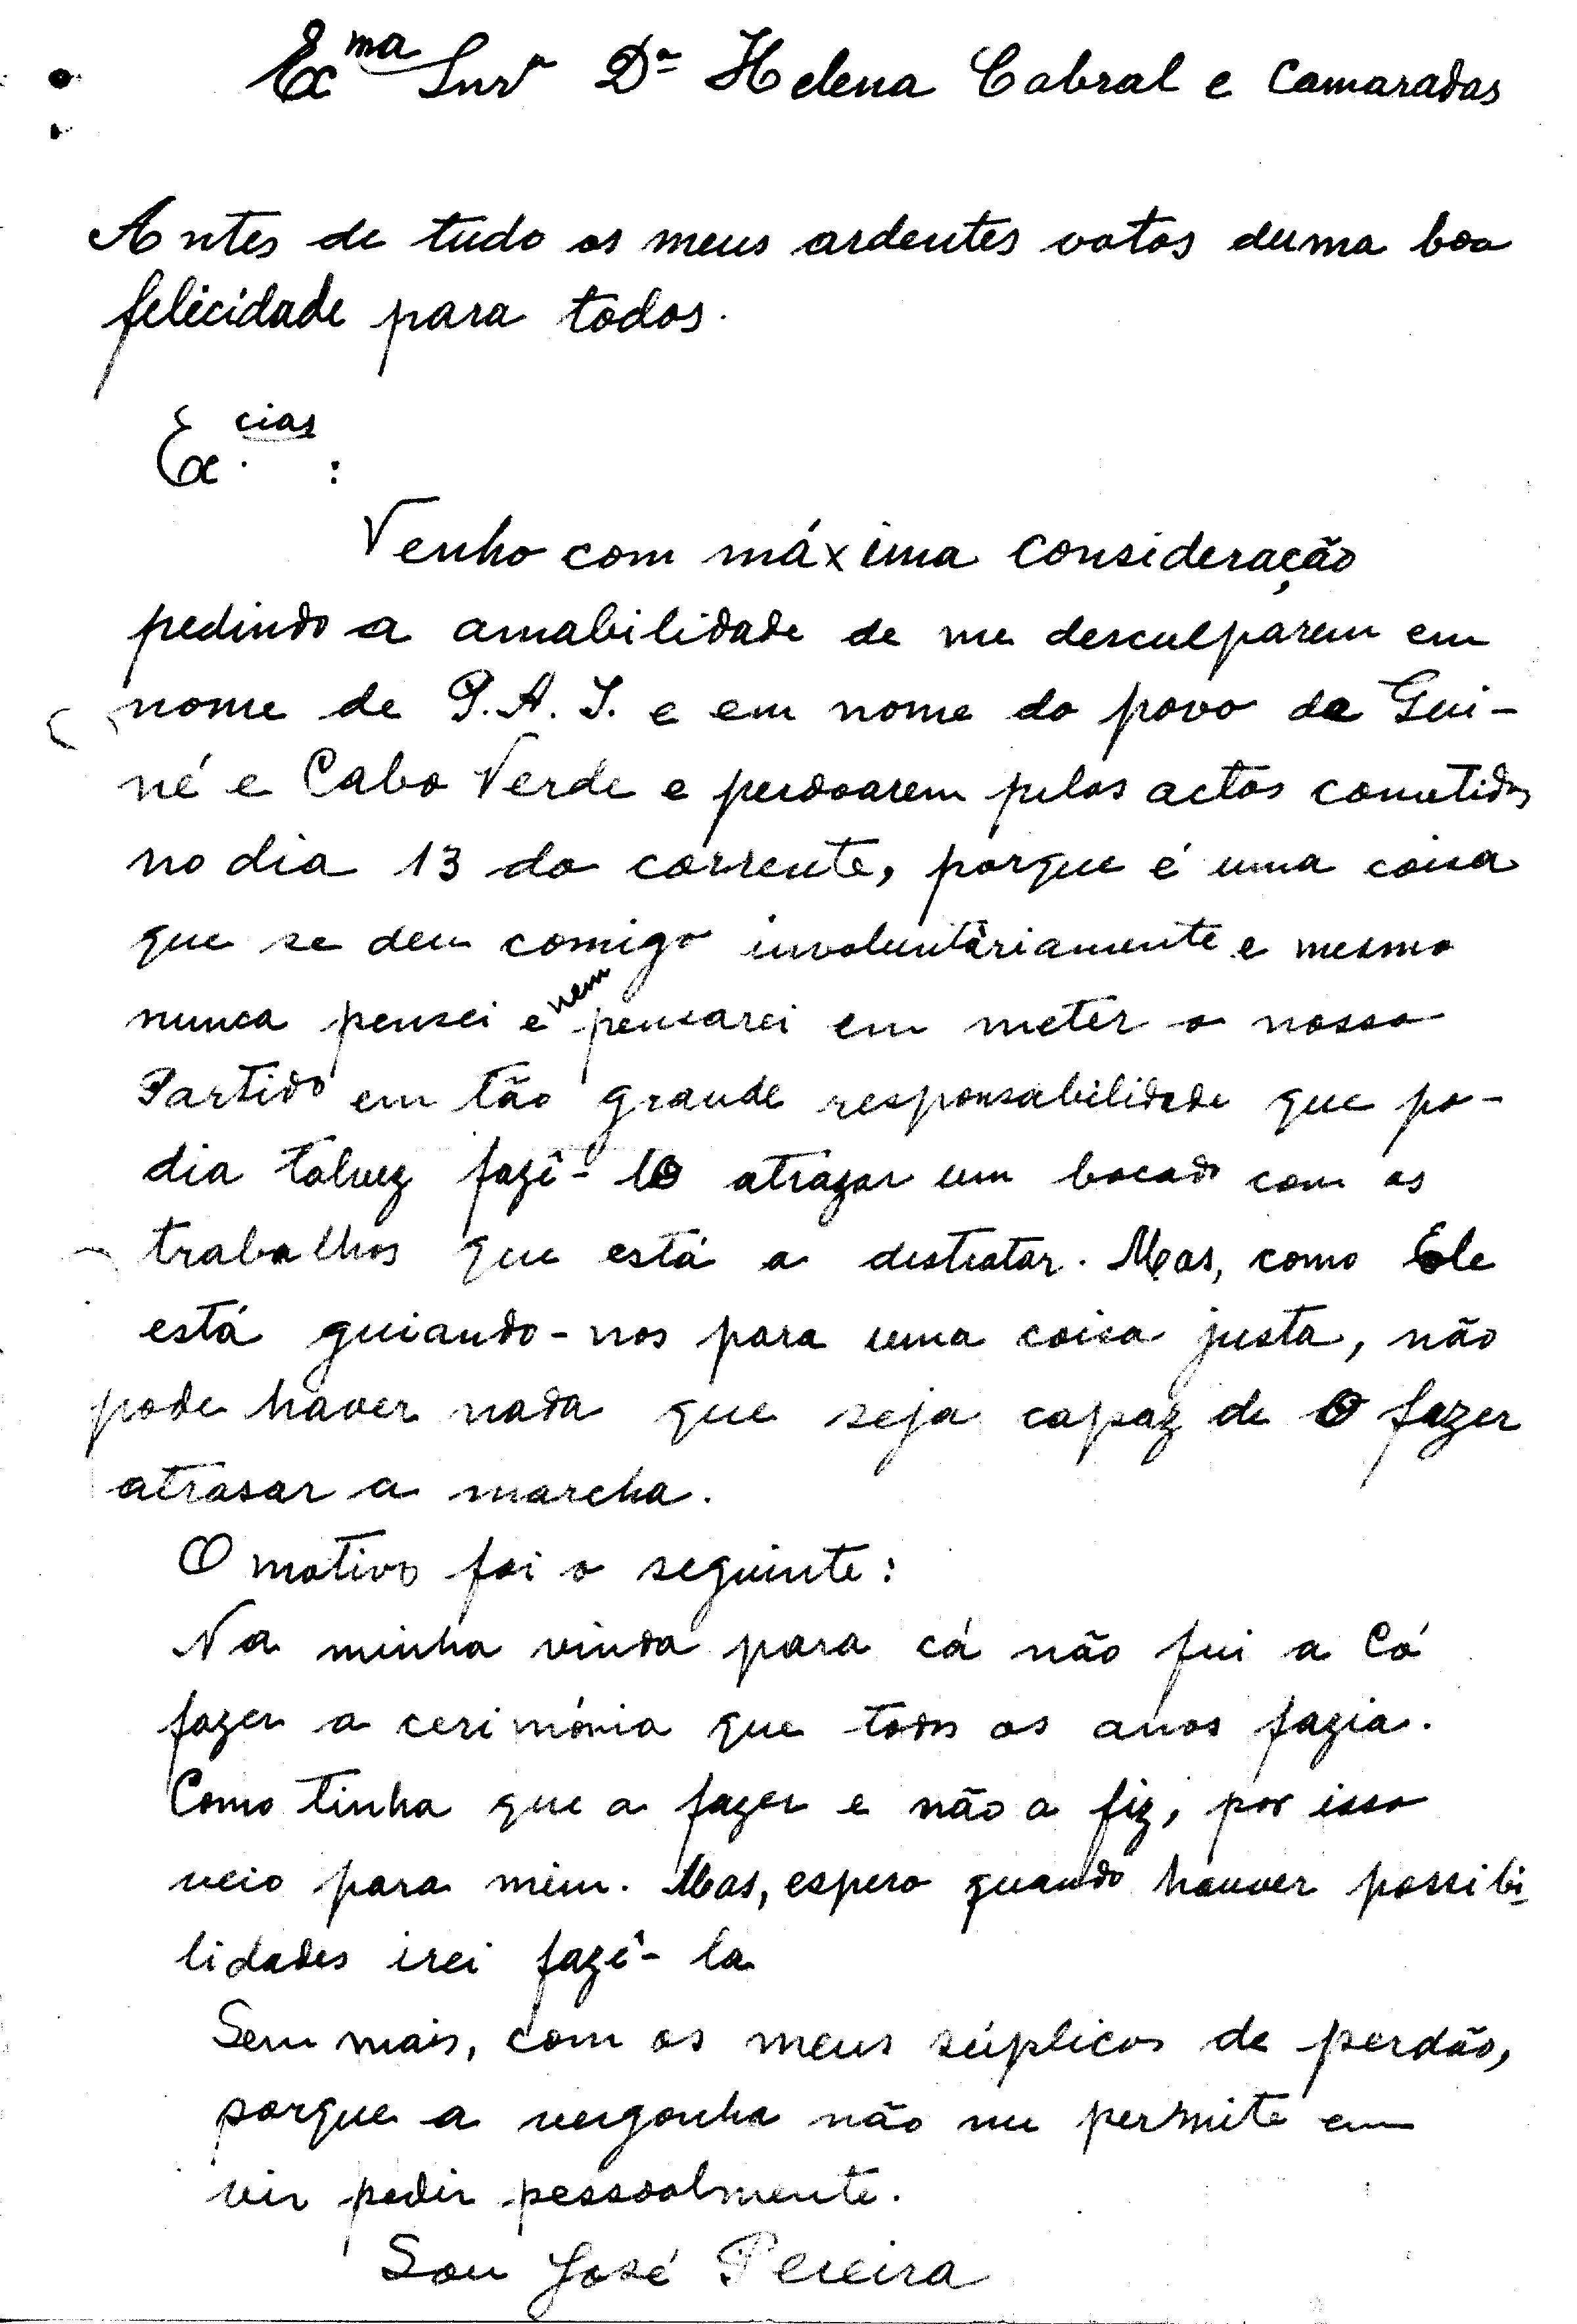 Exma Snrª Dª Helena Cabral e Camaradas
Antes de tudo os meus ardentes votos duma boa
felicidade para todos.
Ex.cias:
Venho com máxima consideração
pedindo a amabilidade de me desculparem em
nome de P.A.I. e em nome do povo da Gui-
né e Cabo Verde e perdoarem pelos actos cometidos
no dia 13 do corrente, porque é uma coisa
que se deu comigo involuntàriamente e mesmo
nunca pensei e nem pensarei em meter o nosso
Partido em tão grande responsabilidade que po-
dia talvez fazê-lo atrazar um bocado com os
trabalhos que está a destratar. Mas, como Ele
está guiando-nos para uma coisa justa, não
pode haver nada que seja capaz de O fazer
atrasar a marcha.
O motivo foi o seguinte:
Na minha vinda para cá não fui a Có
fazer a cerimónia que todos os anos fazia.
Como tinha que a fazer e não a fiz, por isso
veio para mim. Mas, espero quando houver possibi-
lidades irei fazê-la
Sem mais, com os meus súplicos de perdão,
porque a vergonha não me permite em
vir pedir pessoalmente.
Sou José Pereira